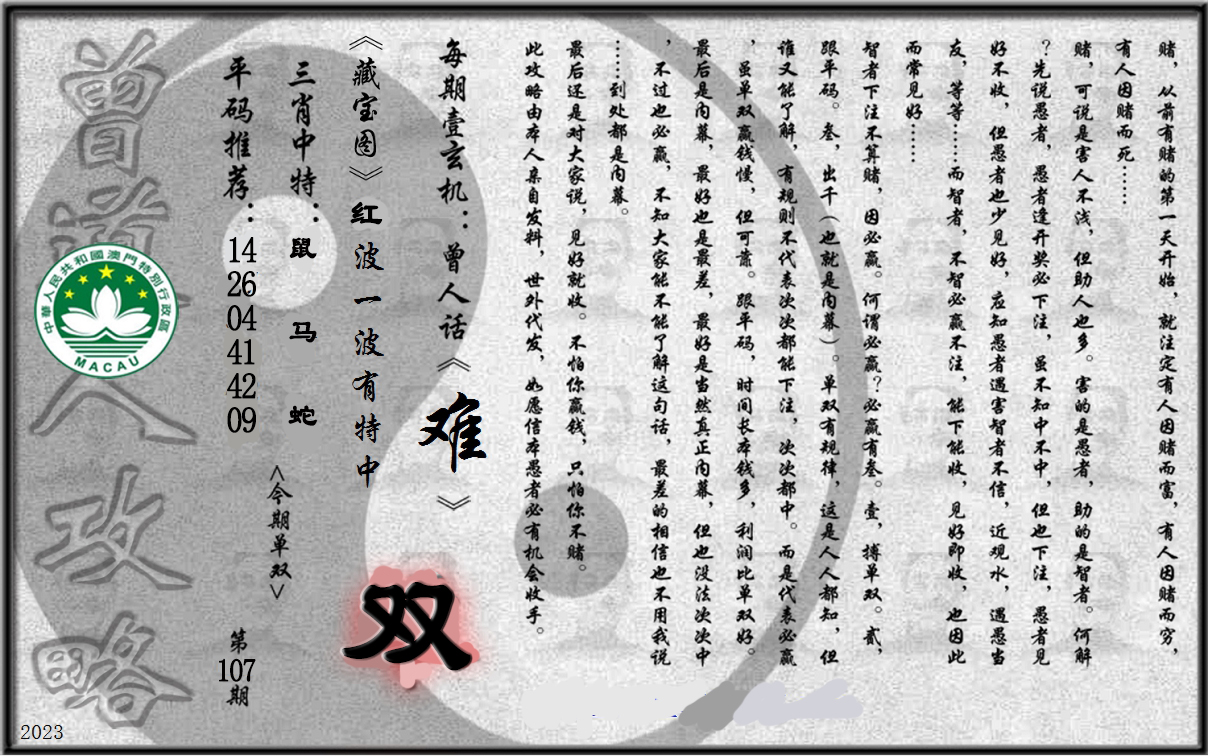 赌，从前有赌的第一天开始，就注定有人因赌而富，有人因赌而穷，
有人因赌而死……
赌，可说是害人不浅，但助人也多。害的是愚者，助的是智者。何解
？先说愚者，愚者逢开奖必下注，虽不知中不中，但也下注，愚者见
好不收，但愚者也少见好，应知愚者遇害智者不信，近观水，遇愚当
友，等等……而智者，不智必赢不注，能下能收，见好即收，也因此
而常见好……
智者下注不算赌，因必赢。何谓必赢？必赢有叁。壹，搏单双。贰，
跟平码。叁，出千（也就是内幕）。单双有规律，这是人人都知，但
谁又能了解，有规则不代表次次都能下注，次次都中。而是代表必赢
，虽单双赢钱慢，但可靠。跟平码，时间长本钱多，利润比单双好。
最后是内幕，最好也是最差，最好是当然真正内幕，但也没法次次中
，不过也必赢，不知大家能不能了解这句话，最差的相信也不用我说
……到处都是内幕。
最后还是对大家说，见好就收。不怕你赢钱，只怕你不赌。
此攻略由本人亲自发料，世外代发，如愿信本愚者必有机会收手。
每期壹玄机：曾人话《难》
《藏宝图》红波一波有特中
双
三肖中特：鼠 马 蛇
<今期单双>
平码推荐：14 26 04 41 42 09
第107期
曾道人攻略
中華人民共和國澳門特別行政區
MACAU
2023